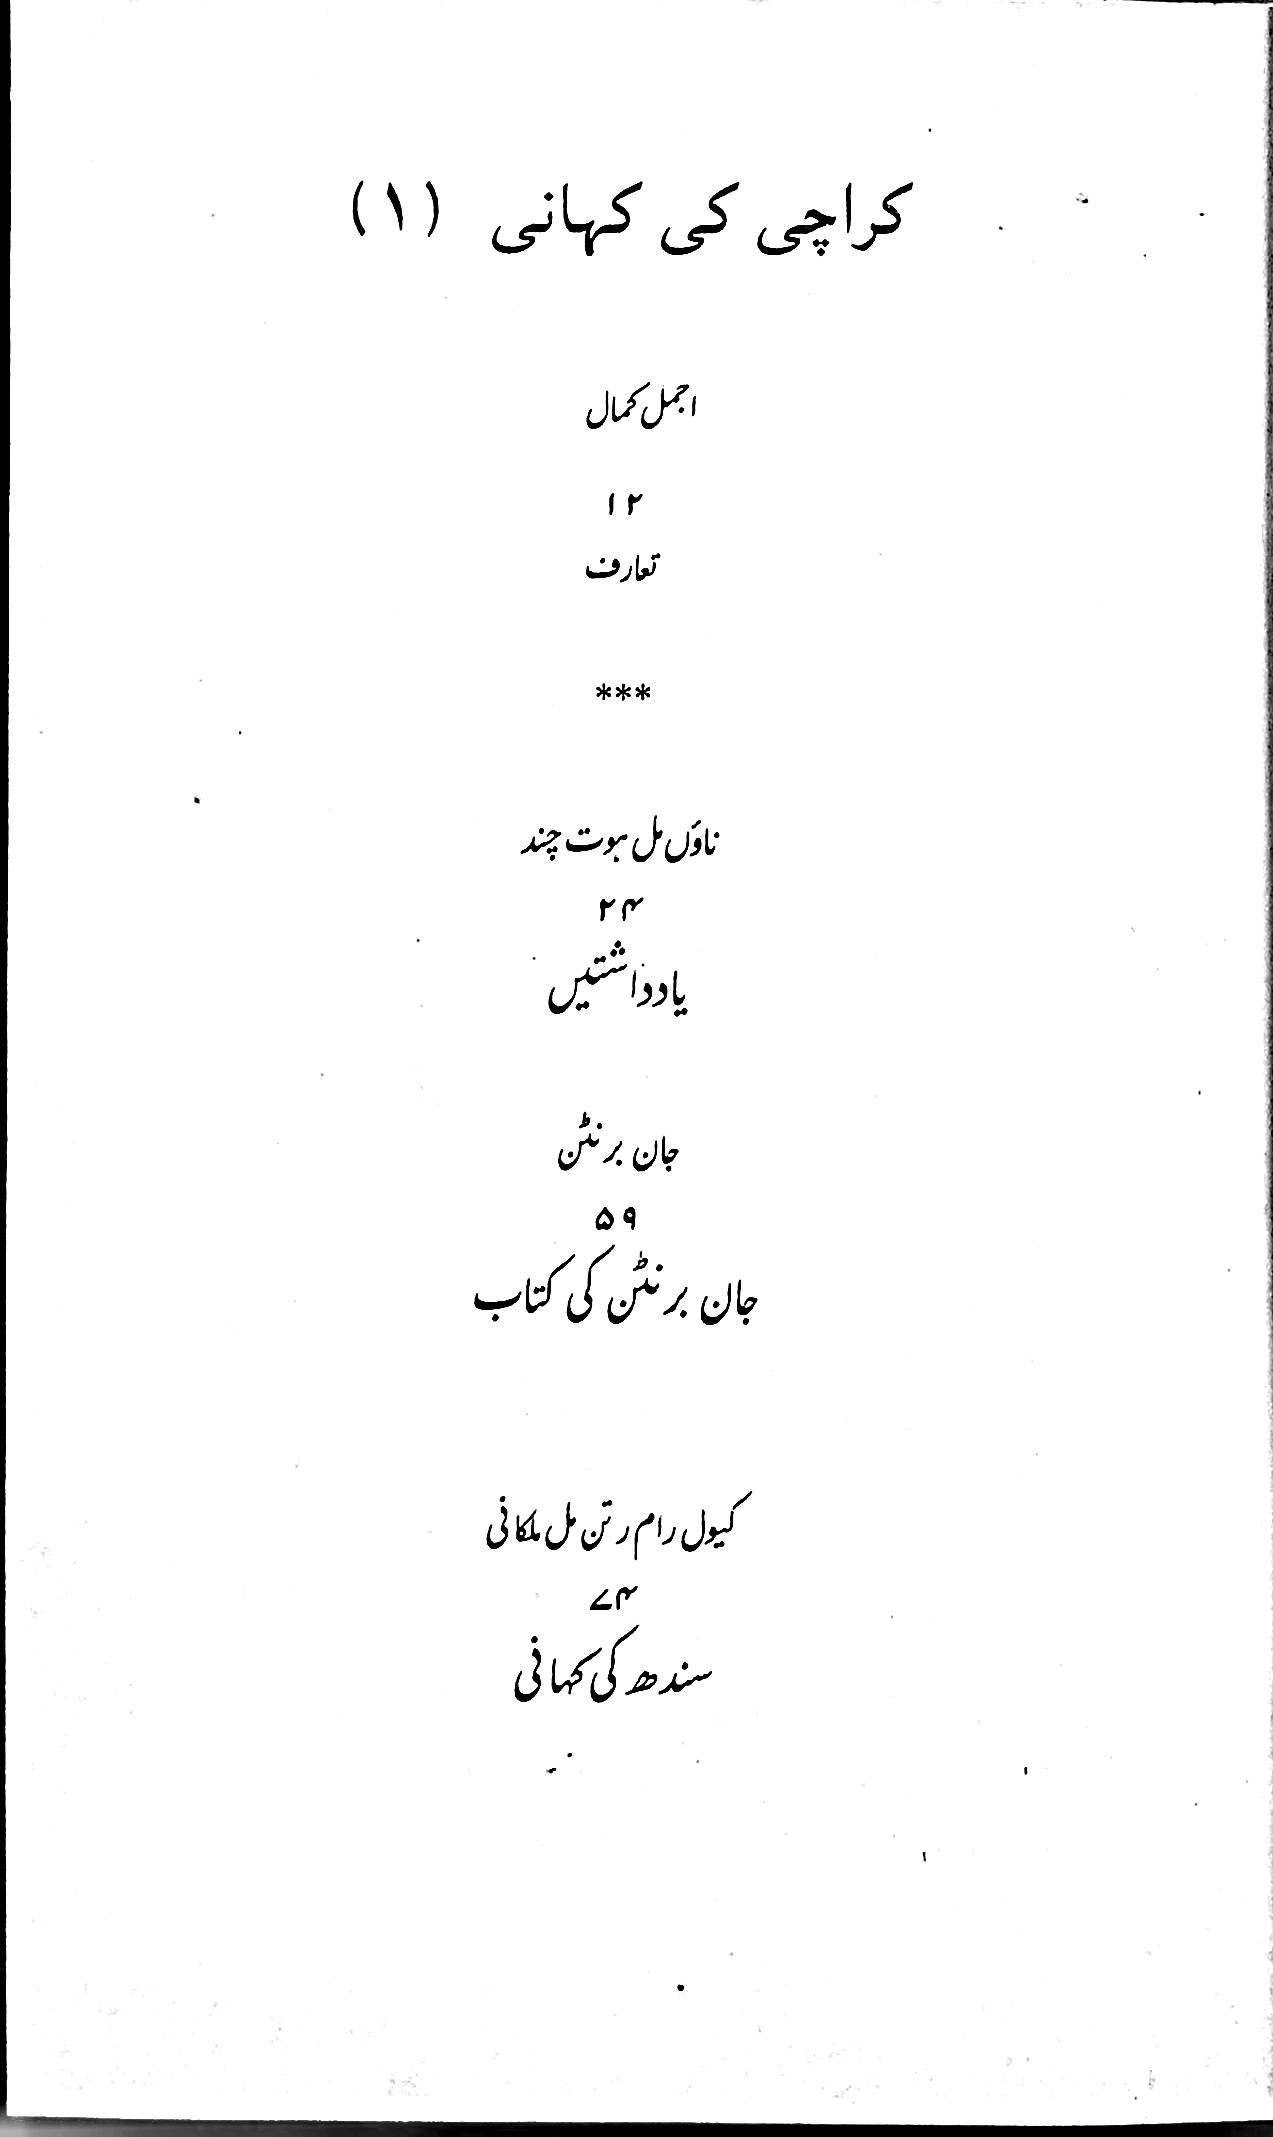 کراچی کی کہانی (۱)
اجمل کمال
۱۲
تعارف
***
ناؤں مل ہوت چند
۲۴
یادداشتیں
جان برنٹن
۵۹
جان برنٹن کی کتاب
کیول رام رتن مل ملکانی
۷۴
سندھ کی کہانی